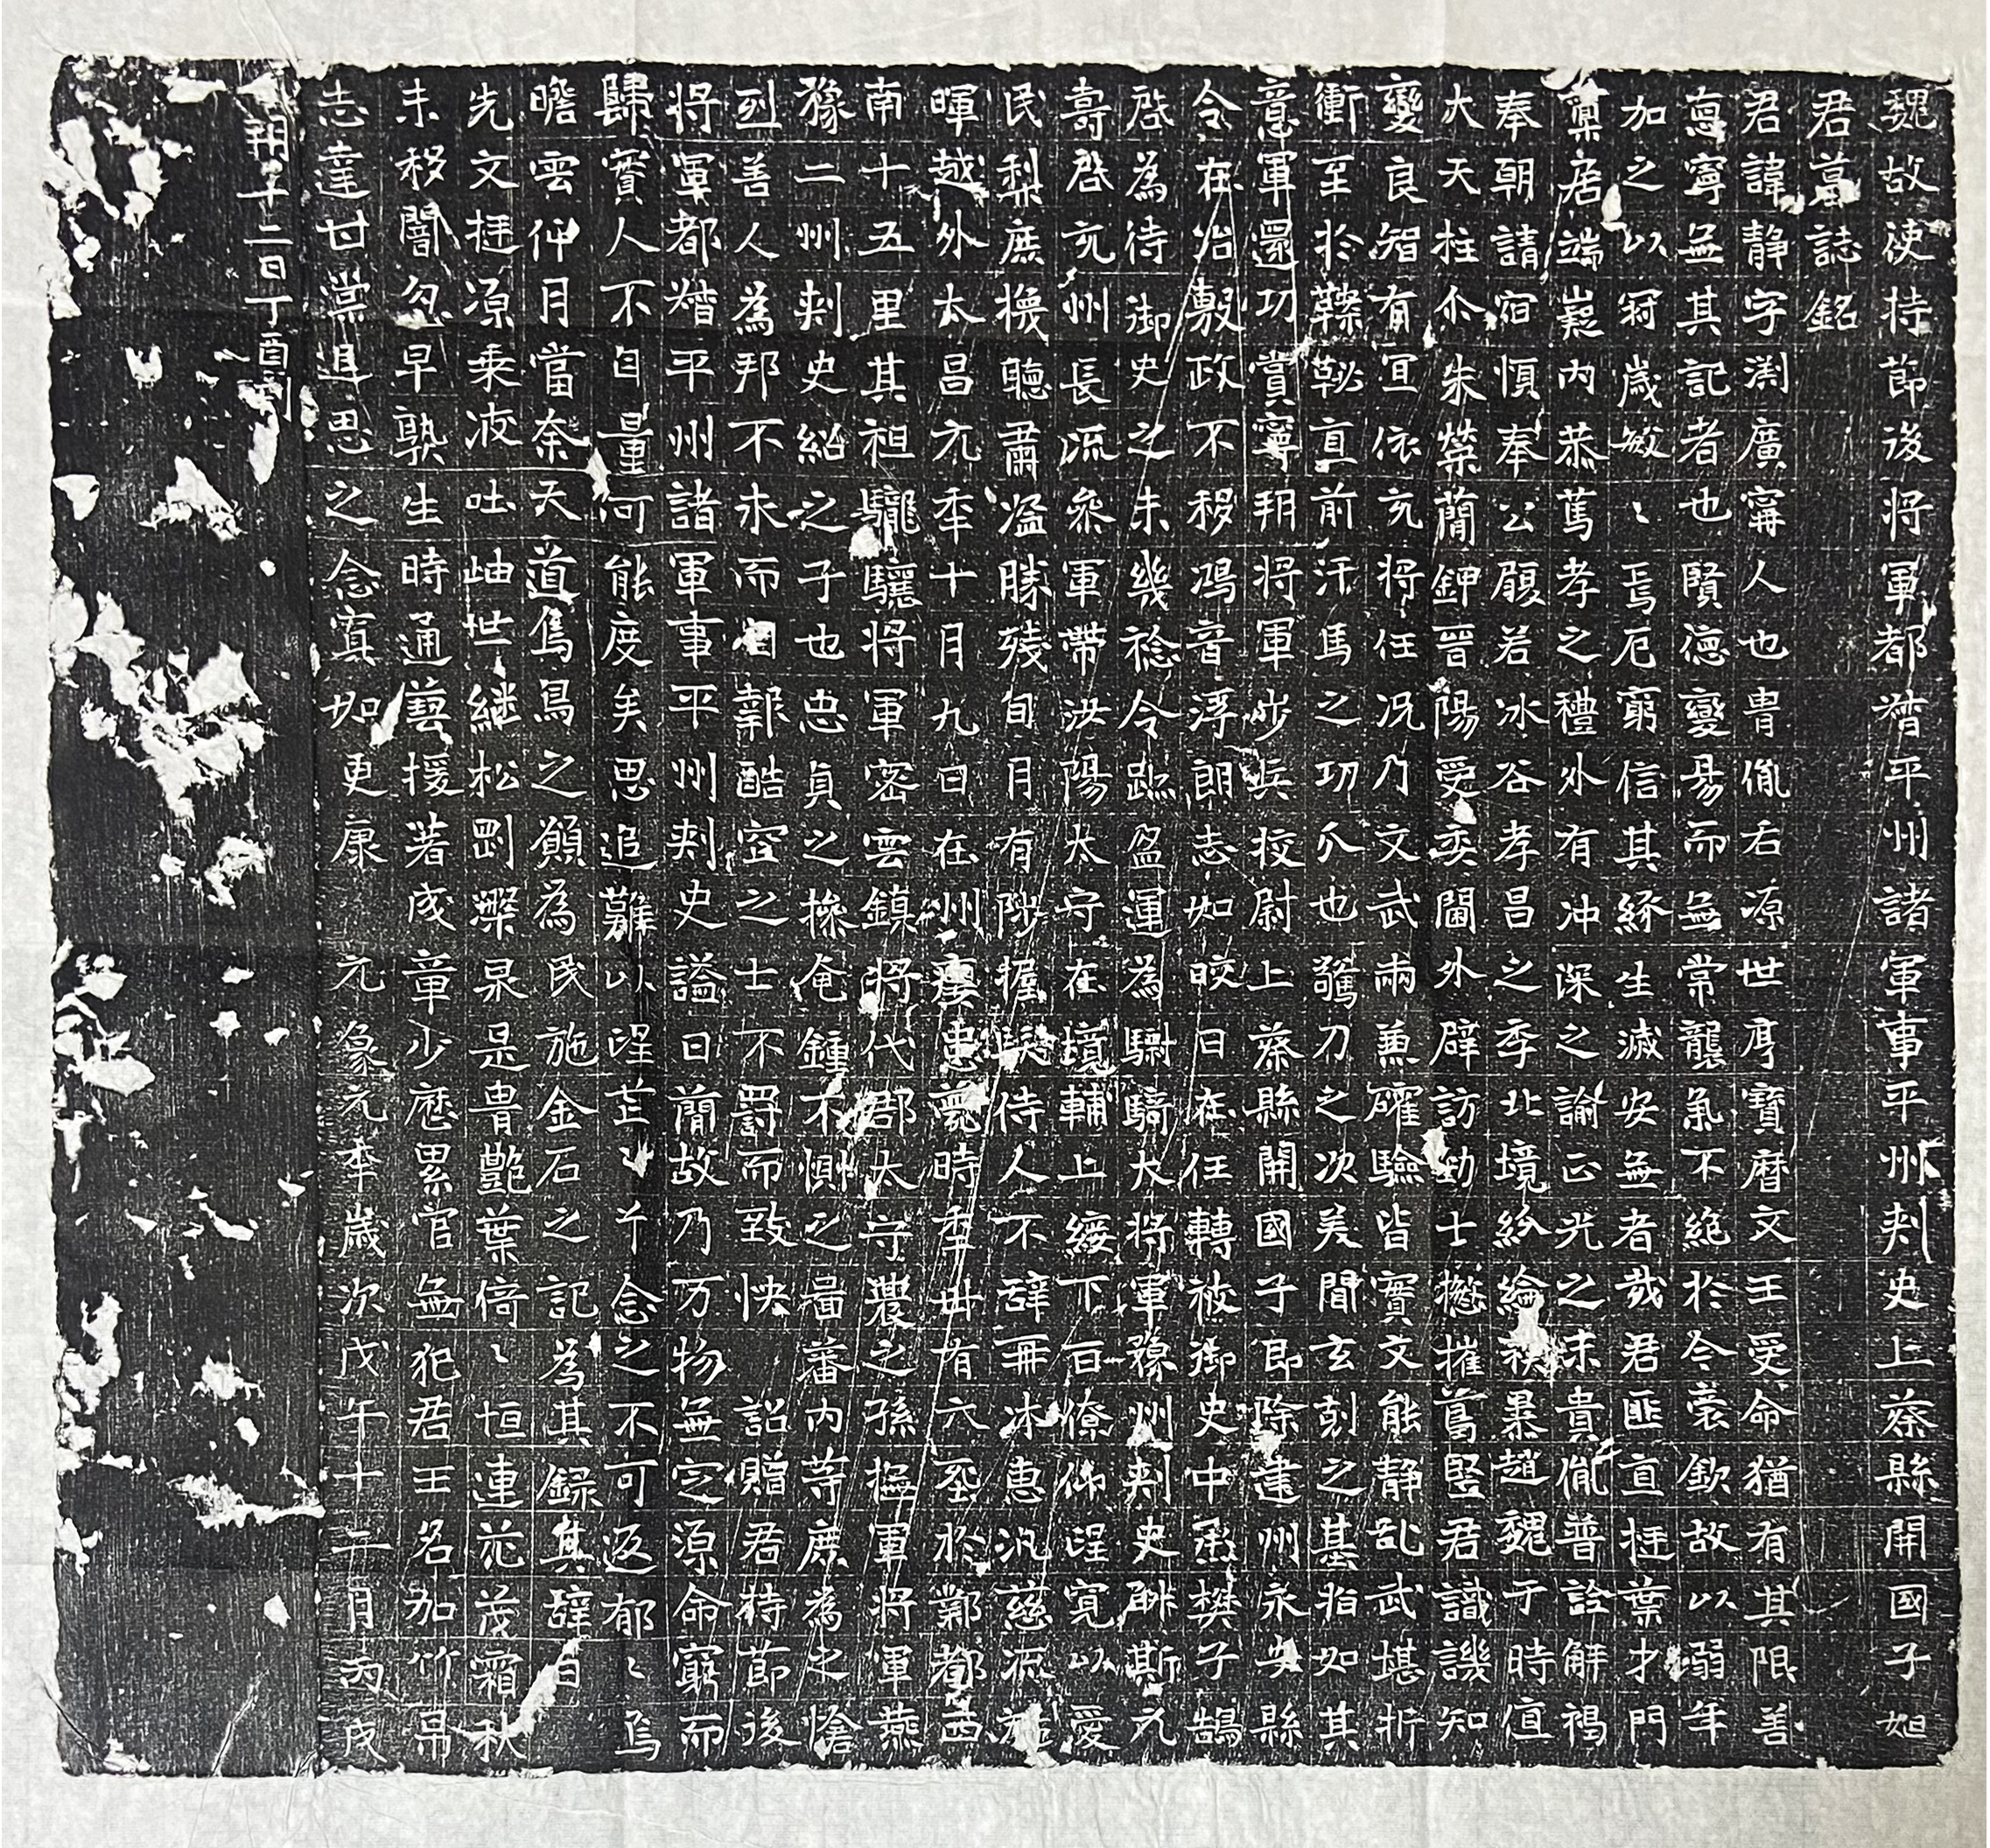 魏故使持節後將軍都督平州諸軍事平州刺史上蔡縣開國子妲
君墓誌銘
君諱靜字渊廣甯人也胄胤右源世厚寶曆文王受命猶有其限善
惪寧無其記者也賢德變易而無常襲氣不絕於今裳欽故以弱年
加之以冠歲敏〻焉厄窮信其緣生滅安無者哉君匪直挺葉才門
稟居端嶷內恭篤孝之禮外有沖深之諭正光之末貴胤普詮解褐
奉朝請宿慎奉公履若冰谷孝昌之季北境紛綸秡暴趙魏于時直
大天柱尒朱榮蕳鉀晉陽受委閫外辟訪勁士撚摧萬堅君識譏知
變良智有宜依充將任況乃文武兩兼確驗皆實文能靜乱武堪折
衝至於鞣鞑直前汗馬之功爪也鷔刀之次美聞玄刻之基指如其
意軍還功賞寧朔將軍步兵挍尉上蔡縣開國子即除建州永安縣
令在治敷政不移鴻音浮朗志如晈日在任轉被御史中丞樊子鵠
啓為待御史之未幾稔令迹盈運為驃騎大將軍豫州刺史斛斯元
壽啓充州長流叅軍帶汝陽太守在境輔上綏下百僚仰𦤀寬以愛
民梨庶攙聽肅濫勝殘旬月有陟握𤼵侍人不辝再沐惠汎慈流
暉越外太昌元季十月九日在州癭患薨時季卅有六塟於鄴都西
南十五里其祖驪驪將軍密雲鎮將代郡太守農之孫撫軍將軍燕
豫二州刺史紹之子也忠貞之操奄鍾不惻之啚蕃內等庶為之愴
烈善人為邦不未而相報酷空之士不罸而致怏 詔贈君持節後
將軍都督平州諸軍事平州刺史謚曰蕳故乃万物無定源命窮而
歸實人不自量何能度矣思追難以𦤀芒少兮念之不可返郁〻焉
瞻雲仰月當奈天道焉烏之願為民施金石之記為其錄其辝曰
先文挺源乗液吐岫世継松罰檪杲是胄艷葉倚〻垣連茫茂霜秋
未移闇忽早孰生時通藝援著成章少應累官無犯君王名加竹帛
志達甘棠追思之念寘如更康 元象元年歲次戊午十二月丙戌
朔十二日丁酉刊